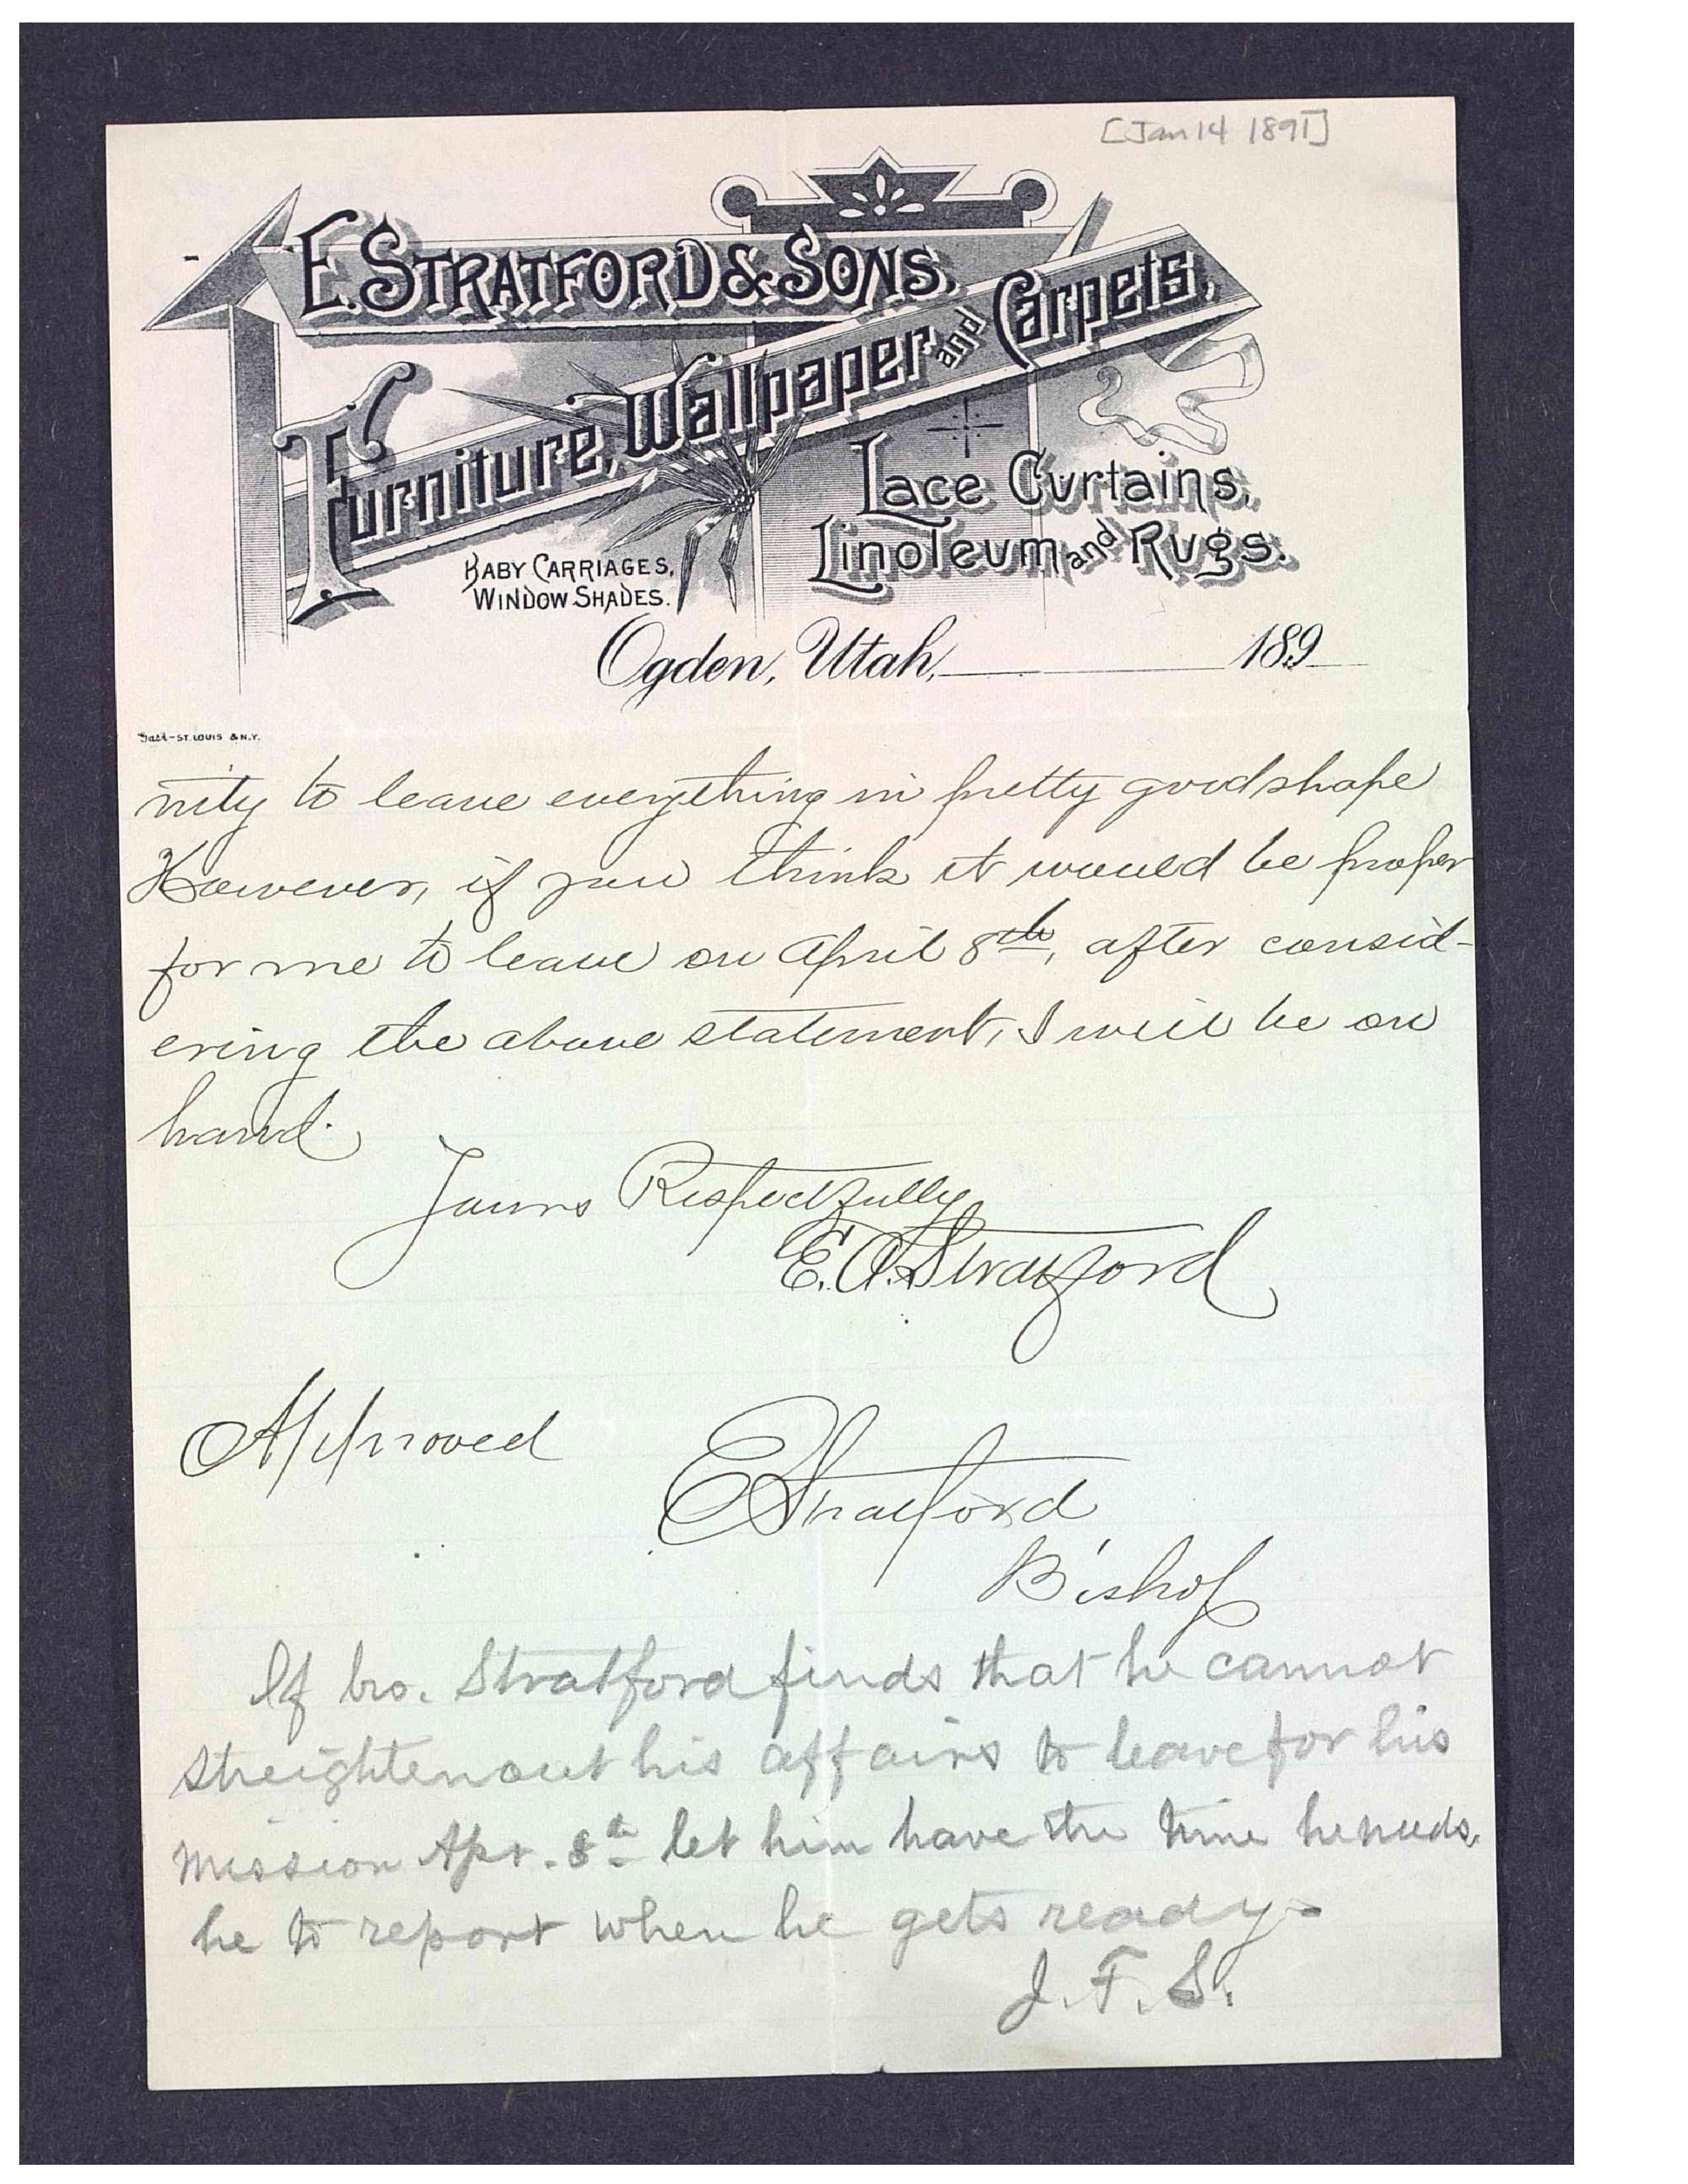 [Jan 14 1891]
E. STRATFORD & SONS.
Furniture, Wallpaper and Carpets,
Lace Curtains,
Linoleum and Rugs.
BABY CARRIAGES,
WINDOW SHADES.
Ogden, Utah, 189
ST. LOUIS & N.Y.
nity to leave everything in pretty good shape
However, if you think it would be proper
for me to leave on April 8th, after consid-
ering the above statement, I will be on
hand.
Yours Respectfully
E. A. Stratford
Approved
E Stratford
Bishop
If bro. Stratford finds that he cannot
streighten out his affairs to leave for his
mission Apr. 8th let him have the time he needs,
he to report when he gets ready-
J. F. S.